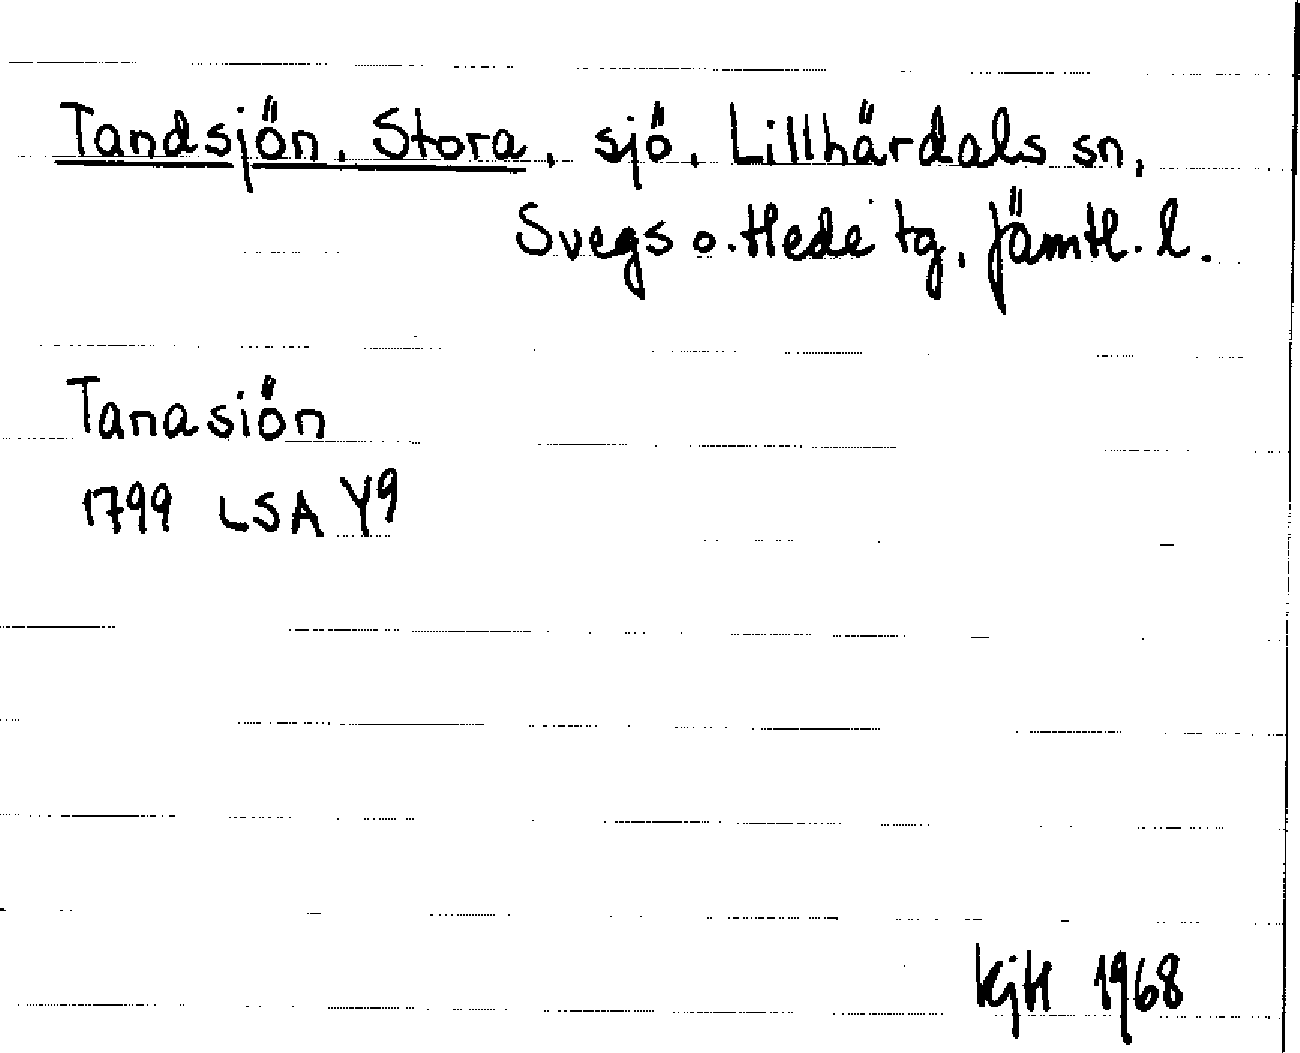 Tandsjön, Stora, sjö, Lillhärdals sn,
Svegs o. Hede tg, Jämtl. l.
Tanasiön
1799 LSA Y9
KjH 1968